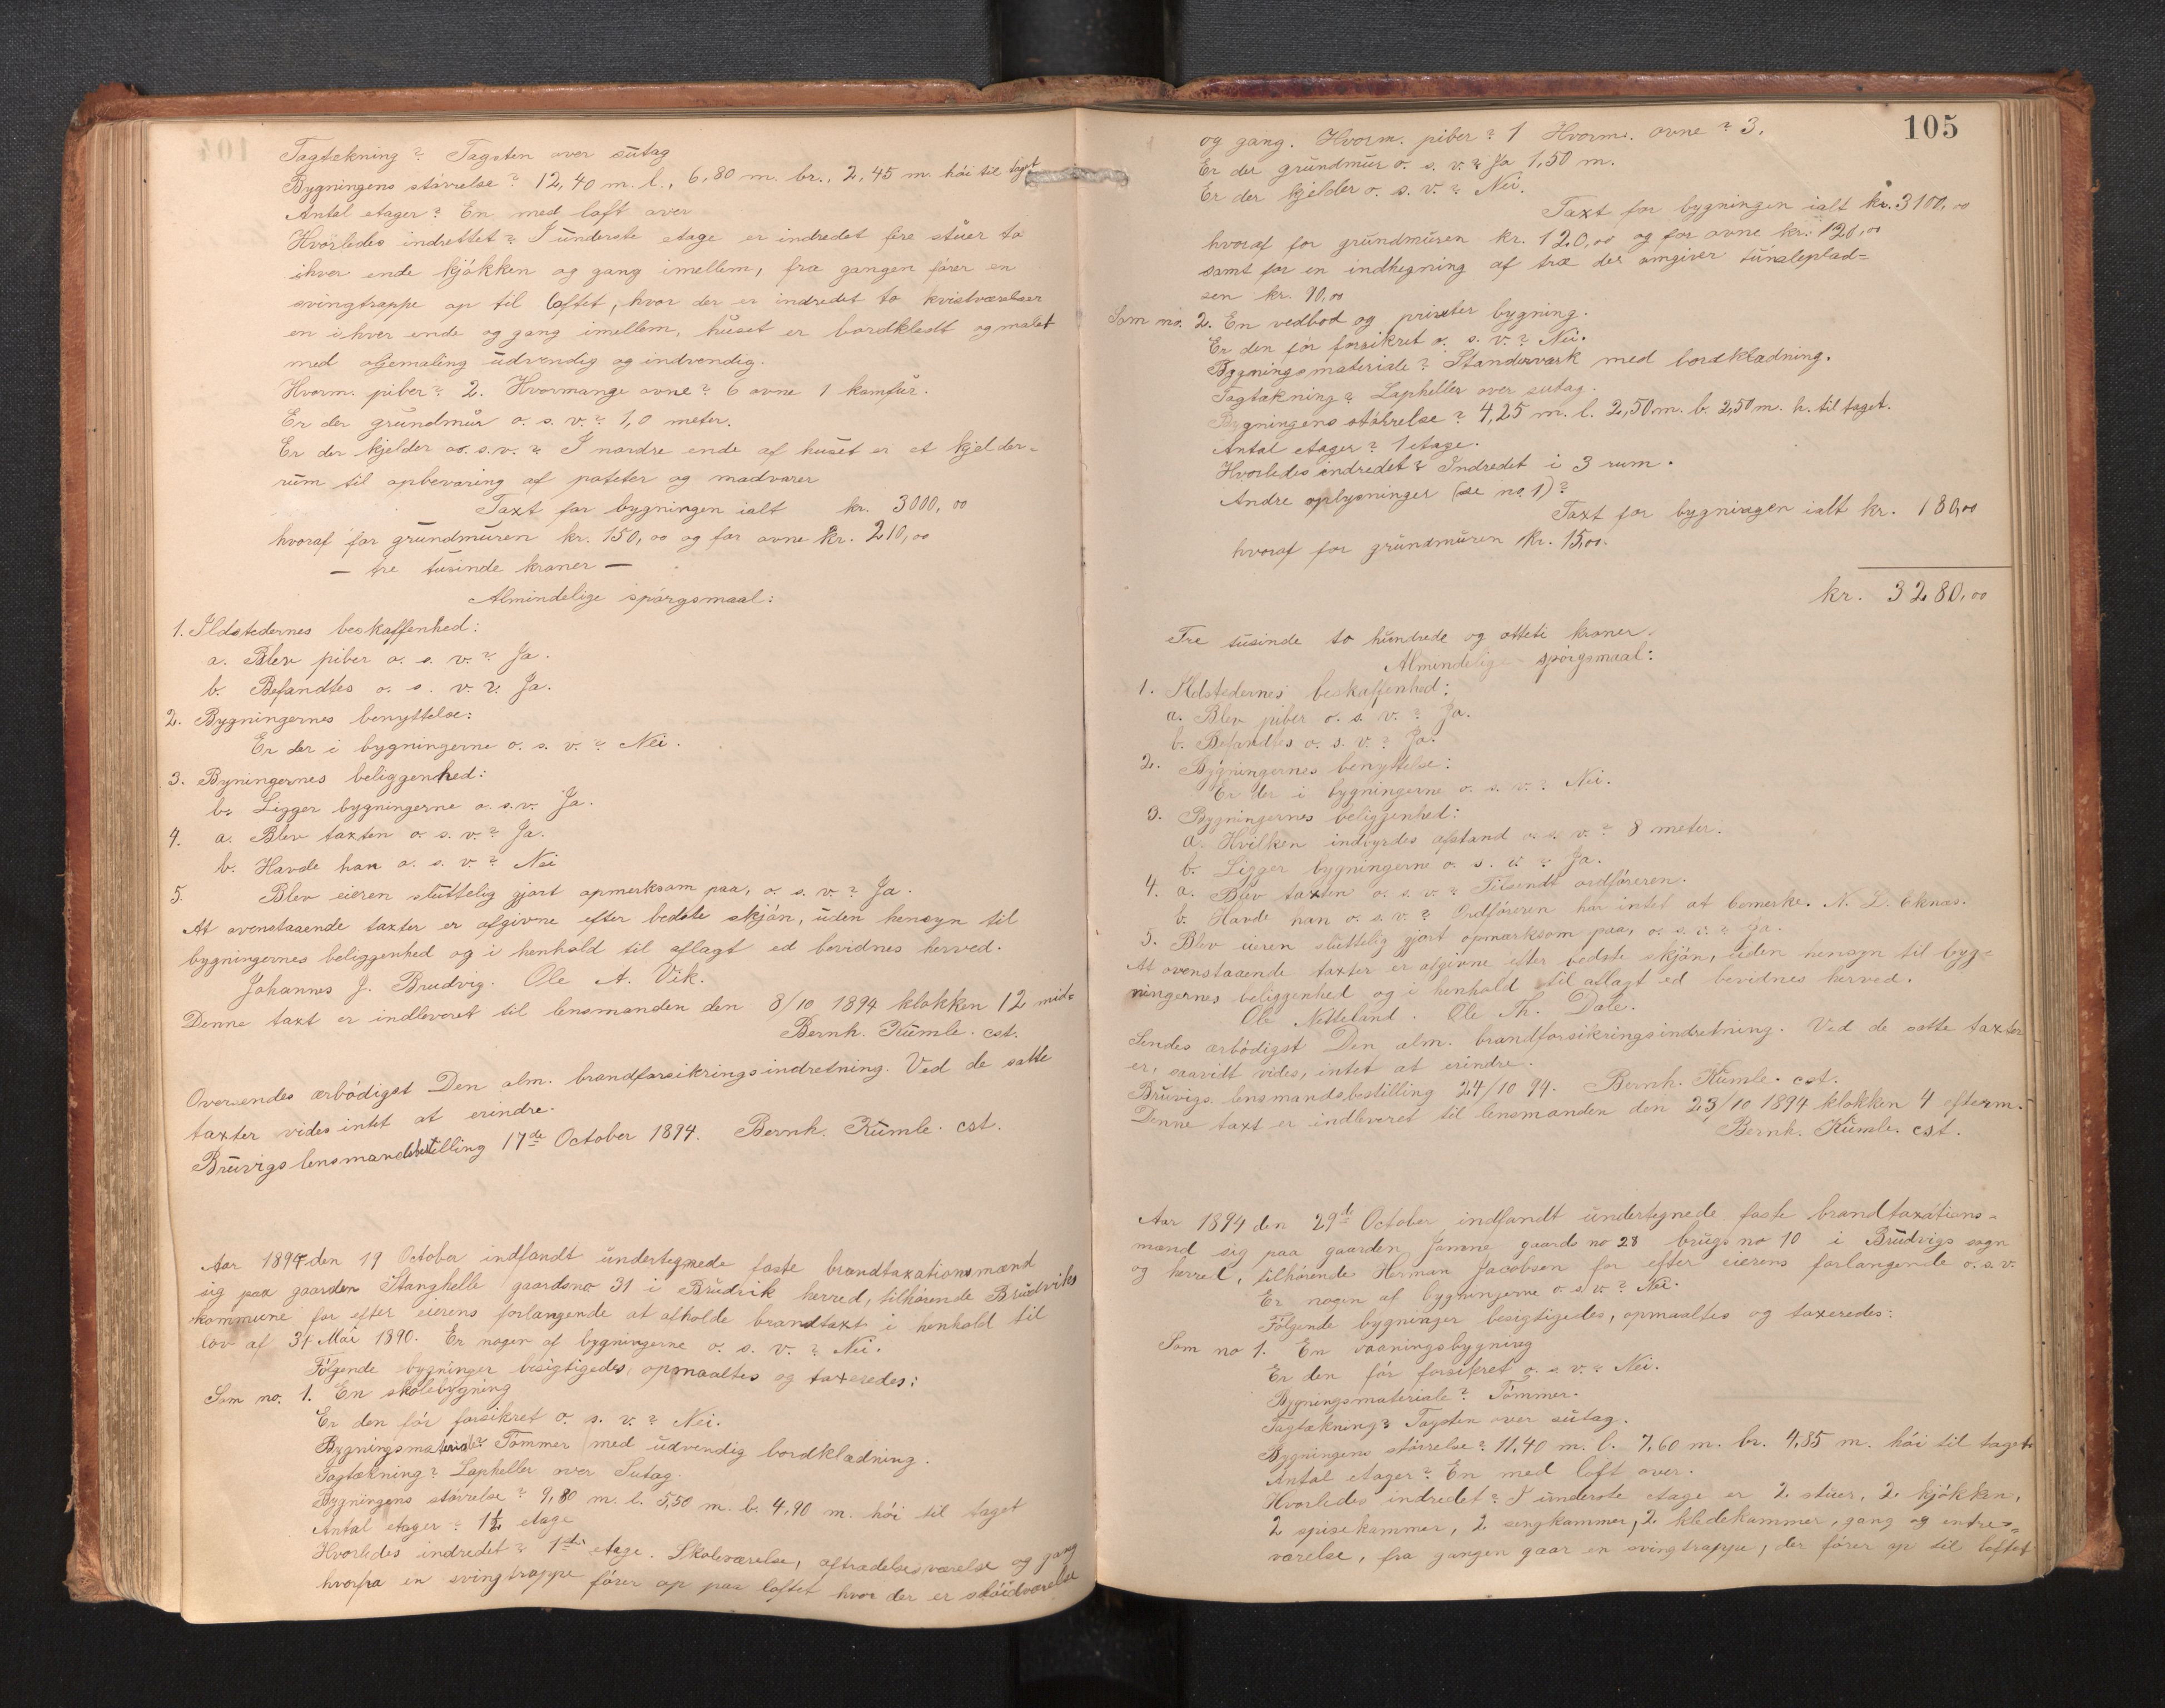 Tagtækning? Tagsten over sutag
Bygningens størrelse? 12,40 m. l., 6,80 m. br., 2,45 m. høi til taget
Antal etager? En med loft over
Hvorledes indrettet? I underste etage er indredet fire stuer to
ihver ende kjøkken og gang imellem, fra gangen fører en
svingtrappe op til loftet, hvor der er indredet to kvistværelser
en i hver ende og gang imellem, huset er bordklædt og malet
med oljemaling udvendig og indvendig.
Hvorm. piber? 2. Hvormange ovne? 6 ovne 1 komfur.
Er der grundmur o. s. v.? 1,0 meter.
Er der kjelder o. s. v.? I nordre ende af huset er et kjelder-
rum til opbevaring af poteter og madvarer
Taxt for bygningen ialt kr. 3000,00
hvoraf for grundmuren kr. 150,00 og for ovne kr. 210,00
— tre tusinde kroner —
Almindelige spørgsmaal:
1. Ildstedernes beskaffenhed:
a. Blev piber o. s. v.? Ja.
b. Befandtes o. s. v.? Ja.
2. Bygningernes benyttelse:
Er der i bygningerne o. s. v.? Nei.
3. Byningernes beliggenhed:
b. Ligger bygningerne o. s. v. Ja.
4. a. Blev taxten o. s. v.? Ja.
b. Havde han o. s. v.? Nei
5. Blev eieren sluttelig gjort opmerksom paa, o. s. v.? Ja.
At ovenstaaende taxter er afgivne efter bedste skjøn, uden hensyn til
bygningernes beliggenhed og i henhold til aflagt ed bevidnes herved.
Johannes J. Brudvig. Ole A. Vik.
Denne taxt er indleveret til lensmanden den 8/10 1894 klokken 12 mid-
Bernh. Kumle. cst.
Oversendes ærbødigst Den alm. brandforsikringsindretning. Ved de satte
taxter vides intet at erindre.
Bruvigs lensmandsbestilling 17de October 1894. Bernh. Kumle. cst.
Aar 1894 den 19 October indfandt undertegnede faste brandtaxationsmænd
sig paa gaarden Stanghelle gaardsno 31 i Brudvik herred, tilhørende Brudviks
kommune for efter eierens forlangende at afholde brandtaxt i henhold til
lov af 31 Mai 1890. Er nogen af bygningerne o. s. v.? Nei.
Følgende bygninger besigtigedes, opmaaltes og taxeredes:
Som no. 1. En skolebygning
Er den før forsikret o. s. v.? Nei.
Bygningsmateriale? Tømmer med udvendig bordklædning.
Tagtækning? Lapheller over Sutag.
Bygningens størrelse? 9,80 m. l. 5,50 m. b. 4,90 m. høi til taget
Antal etager? 1½ etage
Hvorledes indredet? 1ste etage. Skoleværelse, aftrædelsesværelse og gang
hvorfra en svingtrappe fører op paa loftet hvor der er sløidværelse
105
og gang. Hvorm. piber? 1 Hvorm. ovne? 3.
Er der grundmur o. s. v.? Ja 1,50 m.
Er der kjelder o. s. v.? Nei.
Taxt for bygningen ialt kr. 3100,00
hvoraf for grundmuren kr. 120,00 og for ovne kr. 120,00
samt for en indhegning af træ der omgiver tunsleplad-
sen kr. 90,00
Som no. 2. En vedbod og priveter bygning.
Er den før forsikret o. s. v.? Nei.
Bygningsmateriale? Standerværk med bordklædning.
Tagtækning? Lapheller over sutag.
Bygningens størrelse? 4,25 m. l. 2,50 m. b. 2,50 m. h. til taget.
Antal etager? 1 etage.
Hvorledes indredet? Indredet i 3 rum.
Andre oplysninger (se no. 1)?
Taxt for bygningen ialt kr. 180,00
hvoraf for grundmuren kr. 15,00.
kr. 3280,00
Tre tusinde to hundrede og otteti kroner.
Almindelige spørgsmaal:
1. Ildstedernes beskaffenhed:
a. Blev piber o. s. v.? Ja.
b. Befandtes o. s. v.? Ja.
2. Bygningernes benyttelse:
Er der i bygningerne o. s. v.? Nei.
3. Bygningernes beliggenhed:
a. Hvilken indbyrdes afstand o. s. v.? 8 meter.
b. Ligger bygningerne o. s. v.? Ja.
4. a. Blev taxten o. s. v.? Tilsendt ordføreren.
b. Havde han o. s. v.? Ordføreren har intet at bemerke. A. L. Eknæs.
5. Blev eieren sluttelig gjort opmærksom paa, o. s. v.? Ja.
At ovenstaaende taxter er afgivne efter bedste skjøn, uden hensyn til byg-
ningernes beliggenhed og i henhold til aflagt ed bevidnes herved.
Ole Netteland. Ole Th. Dale.
Sendes ærbødigst Den alm. brandforsikringsindretning. Ved de satte taxter
er, saavidt vides, intet at erindre.
Bruvigs lensmandsbestilling 24/10 94. Bernh. Kumle. cst.
Denne taxt er indleveret til lensmanden den 23/10 1894 klokken 4 efterm.
Bernh. Kumle. cst.
Aar 1894 den 29de October indfandt undertegnede faste brandtaxations-
mænd sig paa gaarden Jamne gaards no 28 brugs no 10 i Brudvigs sogn
og herred, tilhørende Herman Jacobsen for efter eierens forlangende o. s. v.
Er nogen af bygningerne o. s. v.? Nei.
Følgende bygninger besigtigedes, opmaaltes og taxeredes:
Som no 1. En vaaningsbygning
Er den før forsikret o. s. v.? Nei.
Bygningsmateriale? Tømmer.
Tagtækning? Tagsten over sutag.
Bygningens størrelse? 11,40 m. l. 7,60 m. br. 4,85 m. høi til taget
Antal etager? En med loft over.
Hvorledes indredet? I underste etage er 2 stuer, 2 kjøkken,
2 spisekammer, 2 sengkammer, 2 kledekammer, gang og entre-
værelse, fra gangen gaar en svingtrappe, der fører op til loftet